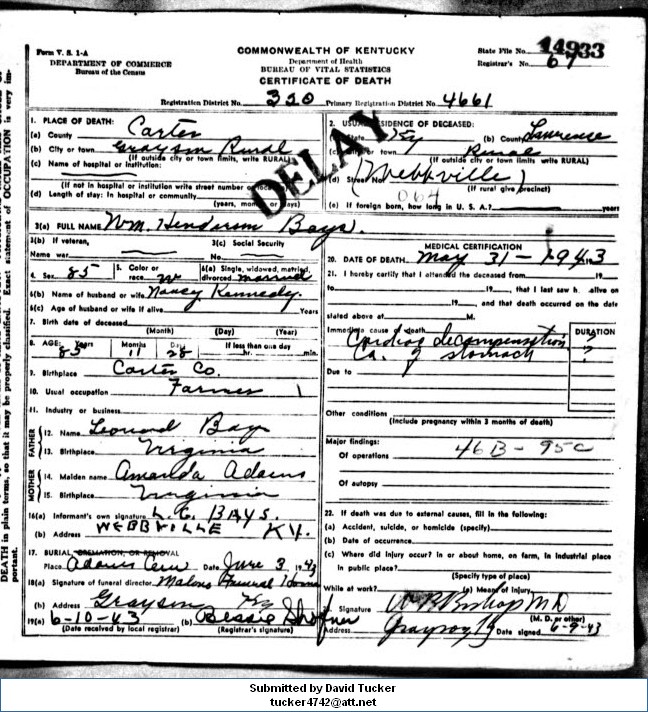 Form V. S. 1-A
DEPARTMENT OF COMMERCE
Bureau of the Census
COMMONWEALTH OF KENTUCKY
Department of Health
BUREAU OF VITAL STATISTICS
CERTIFICATE OF DEATH
State File No. 14933
Registrar's No. 67
Registration District No. 320 Primary Registration District No. 4661
DELAY
1. PLACE OF DEATH:
(a) County Carter
(b) City or town Grayson Rural
(If outside city or town limits, write RURAL)
(c) Name of hospital or institution:
(If not in hospital or institution write street number or location)
(d) Length of stay: In hospital or community
(years, months or days)
2. USUAL RESIDENCE OF DECEASED:
(a) State Ky (b) County Lawrence
(c) City or town Rural
(If outside city or town limits write RURAL)
(d) Street No. (Webbville)
(If rural give precinct)
064
(e) If foreign born, how long in U. S. A.? years
3(a) FULL NAME Wm. Henderson Bays.
3(b) If veteran,
Name war
3(c) Social Security
No.
4. Sex 85
5. Color or race W
6(a) Single, widowed, married, divorced married
6(b) Name of husband or wife Nancy Kennedy.
6(c) Age of husband or wife if alive Years
7. Birth date of deceased
(Month) (Day) (Year)
8. AGE: Years 85 Months 11 Days 28 If less than one day
hr. min.
9. Birthplace Carter Co.
10. Usual occupation Farmer 1
11. Industry or business
FATHER
12. Name Leonard Bays
13. Birthplace Virginia
MOTHER
14. Maiden name Amanda Adams
15. Birthplace Virginia
16(a) Informant's own signature L. C. BAYS.
(b) Address WEBBVILLE KY.
17. BURIAL, CREMATION, OR REMOVAL
Place Adams Cem Date June 3, 1943
18(a) Signature of funeral director Malone Funeral Home
(b) Address Grayson Ky
19(a) 6-10-43 (b) Bessie
(Date received by local registrar) (Registrar's signature)
MEDICAL CERTIFICATION
20. DATE OF DEATH May 31 - 1943
21. I hereby certify that I attended the deceased from 19
to 19, that I last saw h alive on
19, and that death occurred on the date
stated above at M.
Immediate cause of death DURATION
Cardiac decompensation ?
Ca. of stomach ?
Due to
Other conditions
(Include pregnancy within 3 months of death)
Major findings:
Of operations 46B - 95c
Of autopsy
22. If death was due to external causes, fill in the following:
(a) Accident, suicide, or homicide (specify)
(b) Date of occurrence
(c) Where did injury occur? In or about home, on farm, in industrial place
in public place?
(Specify type of place)
While at work? (e) Means of Injury
Signature W B Bishop M D
(M. D. or other)
Address Grayson Ky Date signed 6-9-43
DEATH in plain terms, so that it may be properly classified. Exact statement of OCCUPATION is very important.
Submitted by David Tucker
tucker4742@att.net